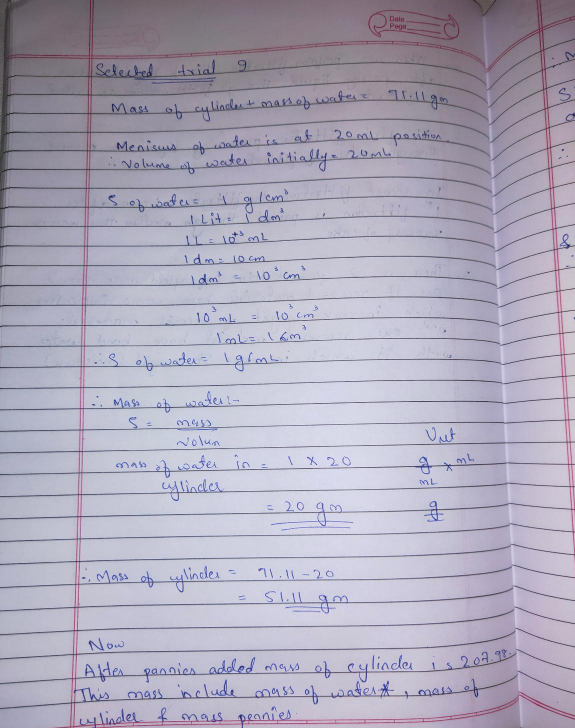 Date
Page
Selected trial 9
Mass of cylinder + mass of water = 71.11 gm
Meniscus of water is at 20 mL position.
∴ Volume of water initially = 20 mL
S of water = 1 g/cm³
1 Lit = 1 dm³
1L = 10⁺³ mL
1 dm = 10 cm
1 dm³ = 10³ cm³
10³ mL = 10³ cm³
1 mL = 1 cm³
∴ S of water = 1 g/mL.
∴ Mass of water :-
S = mass
volum
mass of water in = 1 × 20
cylinder
Unit
g × mL
mL
= 20 gm
g
∴ Mass of cylinder = 71.11 - 20
= 51.11 gm
Now
After pannies added mass of cylinder is 207.98.
This mass include mass of water, mass of
cylinder & mass pennies.